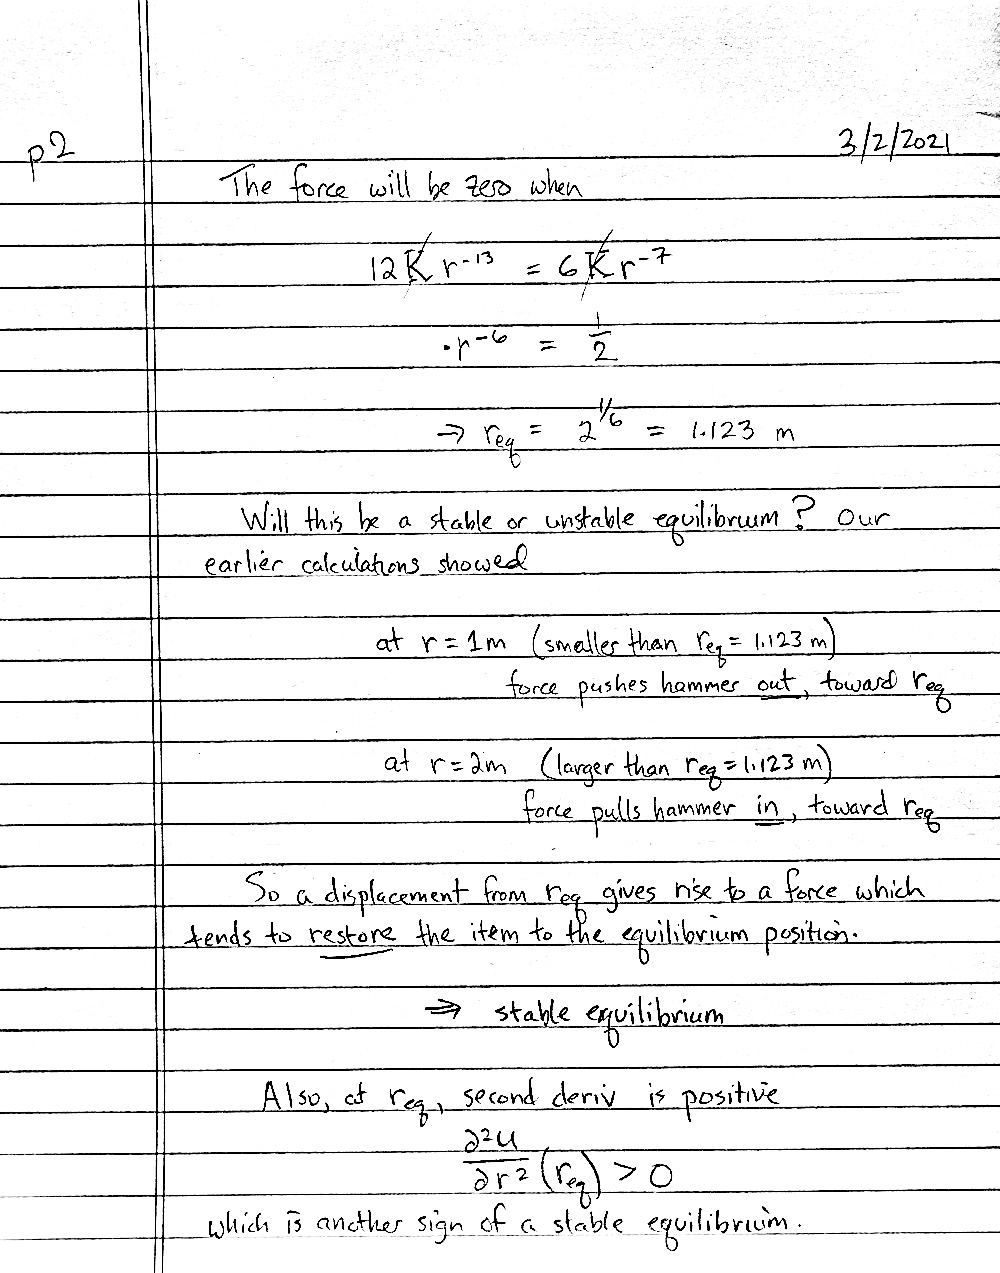 p2
3/2/2021
The force will be zero when
12K r⁻¹³ = 6K r⁻⁷
·r⁻⁶ = 1/2
⇒ r_eq = 2^1/6 = 1.123 m
Will this be a stable or unstable equilibrium? Our
earlier calculations showed
at r = 1m (smaller than r_eq = 1.123 m)
force pushes hammer out, toward r_eq
at r = 2m (larger than r_eq = 1.123 m)
force pulls hammer in, toward r_eq
So a displacement from r_eq gives rise to a force which
tends to restore the item to the equilibrium position.
⇒ stable equilibrium
Also, at r_eq, second deriv is positive
∂²U/∂r² (r_eq) > 0
which is another sign of a stable equilibrium.